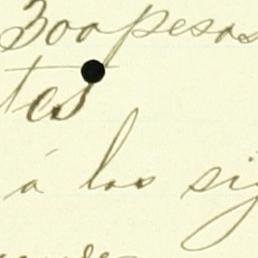 300 pesos
tes
á los sig